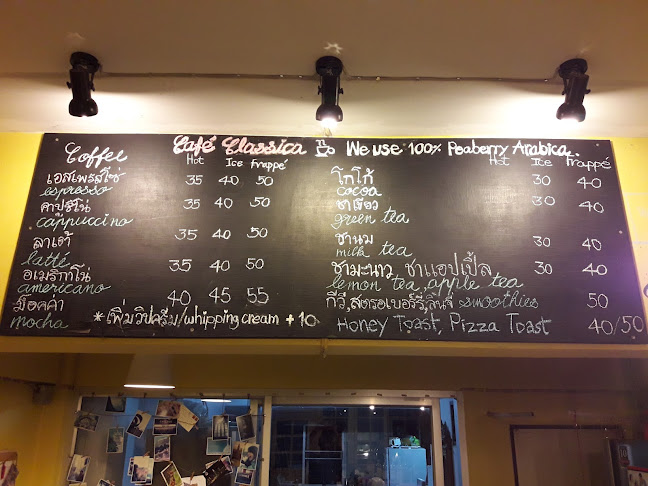 Coffee
Café Classica
We use 100% Peaberry Arabica.
Hot Ice Frappé
เอสเพรสโซ่ 35 40 50
espresso
คาปูชิโน่ 35 40 50
cappuccino
ลาเต้ 35 40 50
latté
อเมริกาโน่ 35 40 50
americano
มอคค่า 40 45 55
mocha
*เพิ่มวิปครีม/whipping cream +10
Hot Ice Frappé
โกโก้ 30 40
cocoa
ชาเขียว 30 40
green tea
ชานม 30 40
milk tea
ชามะนาว ชาแอปเปิ้ล 30 40
lemon tea, apple tea
กีวี่,สตรอเบอร์รี่,ลิ้นจี่ smoothies 50
Honey Toast, Pizza Toast 40/50